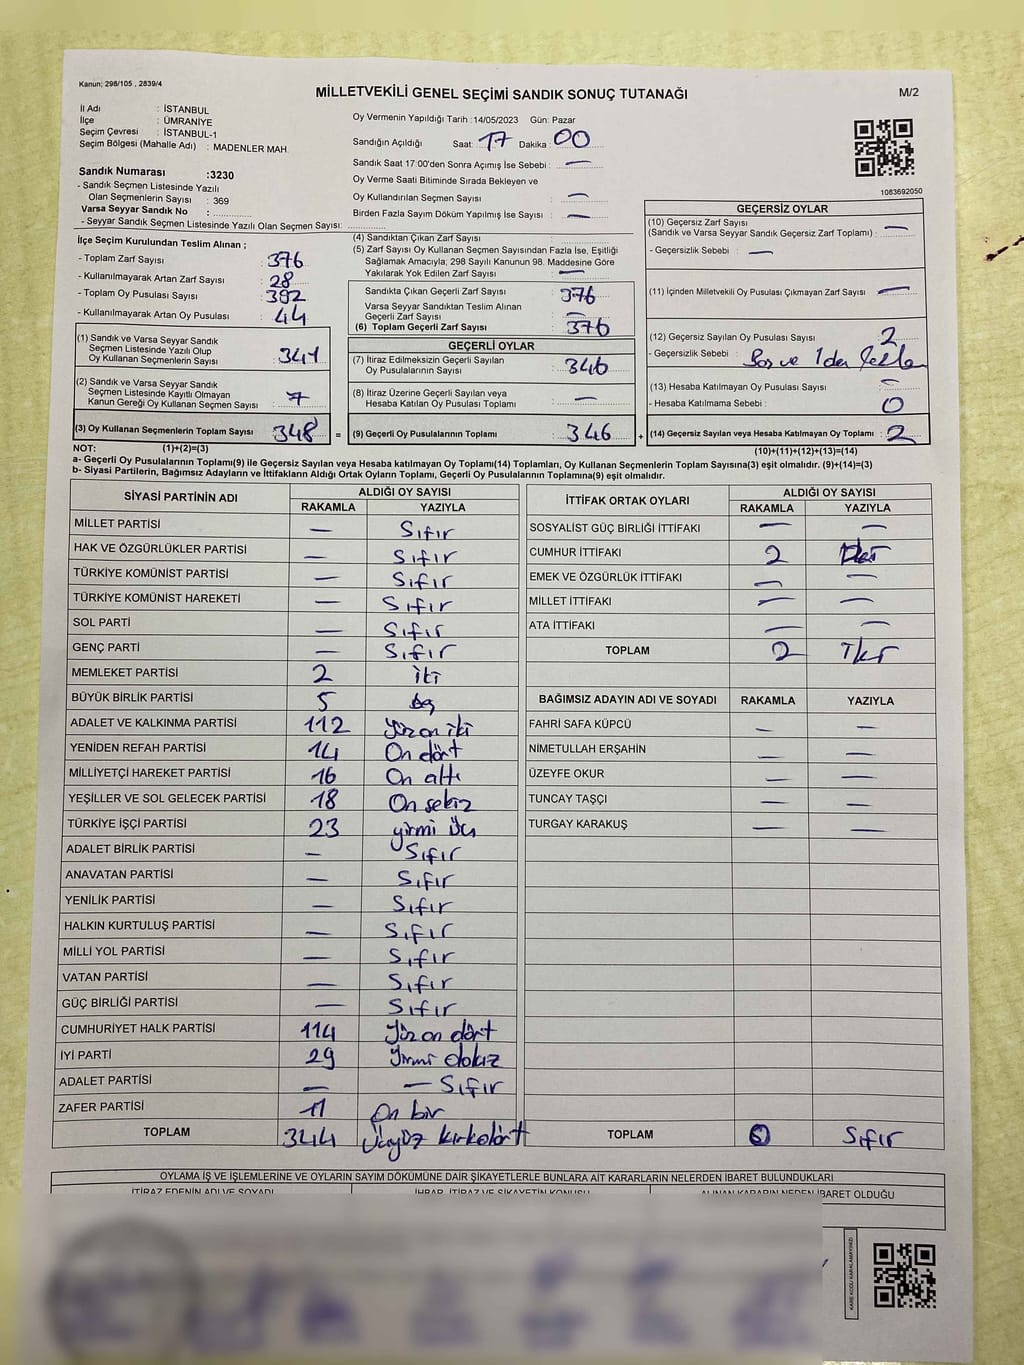 Kanun; 298/105 , 2839/4
MİLLETVEKİLİ GENEL SEÇİMİ SANDIK SONUÇ TUTANAĞI
M/2
İl Adı : İSTANBUL
İlçe : ÜMRANİYE
Seçim Çevresi : İSTANBUL-1
Seçim Bölgesi (Mahalle Adı) : MADENLER MAH.
Sandık Numarası :3230
- Sandık Seçmen Listesinde Yazılı
Olan Seçmenlerin Sayısı : 369
Varsa Seyyar Sandık No :
- Seyyar Sandık Seçmen Listesinde Yazılı Olan Seçmen Sayısı:
Oy Vermenin Yapıldığı Tarih :14/05/2023 Gün: Pazar
Sandığın Açıldığı Saat: 17 Dakika: 00
Sandık Saat 17:00'den Sonra Açımış İse Sebebi : —
Oy Verme Saati Bitiminde Sırada Bekleyen ve
Oy Kullandırılan Seçmen Sayısı : —
Birden Fazla Sayım Döküm Yapılmış İse Sayısı : —
1083692050
İlçe Seçim Kurulundan Teslim Alınan ;
- Toplam Zarf Sayısı : 376
- Kullanılmayarak Artan Zarf Sayısı : 28
- Toplam Oy Pusulası Sayısı : 392
- Kullanılmayarak Artan Oy Pusulası : 44
(1) Sandık ve Varsa Seyyar Sandık
Seçmen Listesinde Yazılı Olup
Oy Kullanan Seçmenlerin Sayısı : 341
(2) Sandık ve Varsa Seyyar Sandık
Seçmen Listesinde Kayıtlı Olmayan
Kanun Gereği Oy Kullanan Seçmen Sayısı : 7
(3) Oy Kullanan Seçmenlerin Toplam Sayısı : 348 =
(4) Sandıktan Çıkan Zarf Sayısı :
(5) Zarf Sayısı Oy Kullanan Seçmen Sayısından Fazla İse, Eşitliği
Sağlamak Amacıyla; 298 Sayılı Kanunun 98. Maddesine Göre
Yakılarak Yok Edilen Zarf Sayısı : —
Sandıkta Çıkan Geçerli Zarf Sayısı : 376
Varsa Seyyar Sandıktan Teslim Alınan
Geçerli Zarf Sayısı : —
(6) Toplam Geçerli Zarf Sayısı : 376
GEÇERLİ OYLAR
(7) İtiraz Edilmeksizin Geçerli Sayılan
Oy Pusulalarının Sayısı : 346
(8) İtiraz Üzerine Geçerli Sayılan veya
Hesaba Katılan Oy Pusulası Toplamı : —
(9) Geçerli Oy Pusulalarının Toplamı : 346 +
GEÇERSİZ OYLAR
(10) Geçersiz Zarf Sayısı
(Sandık ve Varsa Seyyar Sandık Geçersiz Zarf Toplamı) : —
- Geçersizlik Sebebi : —
(11) İçinden Milletvekili Oy Pusulası Çıkmayan Zarf Sayısı : —
(12) Geçersiz Sayılan Oy Pusulası Sayısı : 2
- Geçersizlik Sebebi : Boş ve 1 den fazla
(13) Hesaba Katılmayan Oy Pusulası Sayısı : —
- Hesaba Katılmama Sebebi : 0
(14) Geçersiz Sayılan veya Hesaba Katılmayan Oy Toplamı : 2
NOT: (1)+(2)=(3) (10)+(11)+(12)+(13)=(14)
a- Geçerli Oy Pusulalarının Toplamı(9) ile Geçersiz Sayılan veya Hesaba katılmayan Oy Toplamı(14) Toplamları, Oy Kullanan Seçmenlerin Toplam Sayısına(3) eşit olmalıdır. (9)+(14)=(3)
b- Siyasi Partilerin, Bağımsız Adayların ve İttifakların Aldığı Ortak Oyların Toplamı, Geçerli Oy Pusulalarının Toplamına(9) eşit olmalıdır.
SİYASİ PARTİNİN ADI ALDIĞI OY SAYISI
RAKAMLA YAZIYLA
MİLLET PARTİSİ — Sıfır
HAK VE ÖZGÜRLÜKLER PARTİSİ — Sıfır
TÜRKİYE KOMÜNİST PARTİSİ — Sıfır
TÜRKİYE KOMÜNİST HAREKETİ — Sıfır
SOL PARTİ — Sıfır
GENÇ PARTİ — Sıfır
MEMLEKET PARTİSİ 2 iki
BÜYÜK BİRLİK PARTİSİ 5 beş
ADALET VE KALKINMA PARTİSİ 112 Yüz on iki
YENİDEN REFAH PARTİSİ 14 On dört
MİLLİYETÇİ HAREKET PARTİSİ 16 On altı
YEŞİLLER VE SOL GELECEK PARTİSİ 18 On sekiz
TÜRKİYE İŞÇİ PARTİSİ 23 yirmi üç
ADALET BİRLİK PARTİSİ — Sıfır
ANAVATAN PARTİSİ — Sıfır
YENİLİK PARTİSİ — Sıfır
HALKIN KURTULUŞ PARTİSİ — Sıfır
MİLLİ YOL PARTİSİ — Sıfır
VATAN PARTİSİ — Sıfır
GÜÇ BİRLİĞİ PARTİSİ — Sıfır
CUMHURİYET HALK PARTİSİ 114 Yüz on dört
İYİ PARTİ 29 Yirmi dokuz
ADALET PARTİSİ — — Sıfır
ZAFER PARTİSİ 11 On bir
TOPLAM 344 Üçyüz kırkdört
İTTİFAK ORTAK OYLARI ALDIĞI OY SAYISI
RAKAMLA YAZIYLA
SOSYALİST GÜÇ BİRLİĞİ İTTİFAKI — —
CUMHUR İTTİFAKI 2 İki
EMEK VE ÖZGÜRLÜK İTTİFAKI — —
MİLLET İTTİFAKI — —
ATA İTTİFAKI — —
TOPLAM 2 İki
BAĞIMSIZ ADAYIN ADI VE SOYADI RAKAMLA YAZIYLA
FAHRİ SAFA KÜPCÜ — —
NİMETULLAH ERŞAHİN — —
ÜZEYFE OKUR — —
TUNCAY TAŞÇI — —
TURGAY KARAKUŞ — —
TOPLAM 0 Sıfır
OYLAMA İŞ VE İŞLEMLERİNE VE OYLARIN SAYIM DÖKÜMÜNE DAİR ŞİKAYETLERLE BUNLARA AİT KARARLARIN NELERDEN İBARET BULUNDUKLARI
İTİRAZ EDENİN ADI VE SOYADI İHBAR, İTİRAZ VE ŞİKAYETİN KONUSU ALINAN KARARIN NEDEN İBARET OLDUĞU
KARE KODU KARALAMAYINIZ!